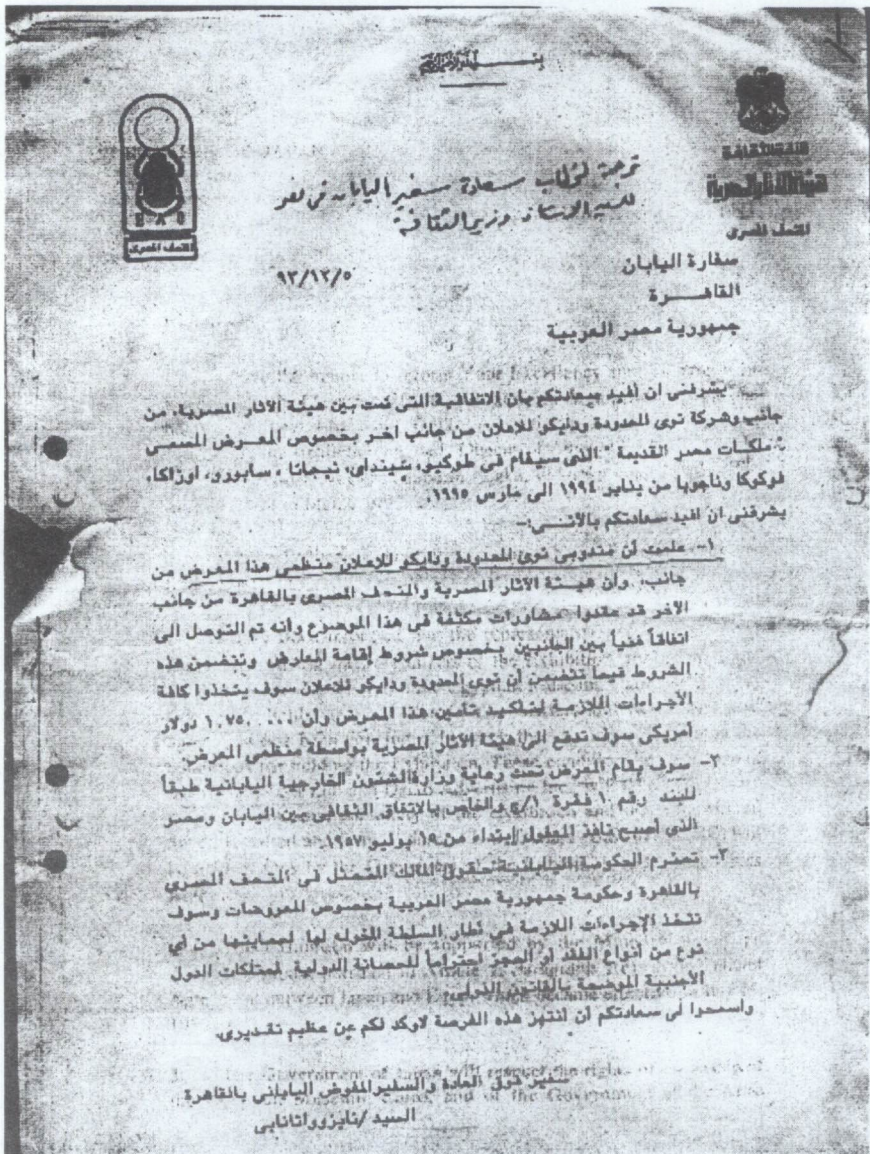 بسم الله الرحمن الرحيم
هيئة الآثار المصرية
المتحف المصرى
المتحف المصرى
ترجمة لخطاب سعادة سفير اليابان فى مصر
للسيد الأستاذ وزير الثقافة
٩٣/١٢/٥
سفارة اليابان
القاهـــرة
جمهورية مصر العربية
يشرفنى ان أفيد سعادتكم بان الاتفاقية التى تمت بين هيئة الآثار المصرية، من
جانب وشركة توى المحدودة ودايكو للاعلان من جانب اخر بخصوص المعرض المسمى
"ملكات مصر القديمة" الذى سيقام فى طوكيو، سينداى، نيجاتا، سابورو، اوزاكا،
فوكوكا وناجويا من يناير ١٩٩٤ الى مارس ١٩٩٥.
يشرفنى ان افيد سعادتكم بالآتـــى:-
١- علمت أن مندوبى توى المحدودة ودايكو للاعلان منظمى هذا المعرض من
جانب، وأن هيئة الآثار المصرية والمتحف المصرى بالقاهرة من جانب
الآخر قد عقدوا مشاورات مكثفة فى هذا الموضوع وأنه تم التوصل الى
اتفاقاً فنياً بين الجانبين بخصوص شروط إقامة المعارض وتتضمن هذه
الشروط فيما تتضمن أن توى المحدودة ودايكو للاعلان سوف يتخذوا كافة
الأجراءات اللازمة لتأكيد تأمين هذا المعرض وأن ١,٧٥٠,٠٠٠ دولار
أمريكى سوف تدفع الى هيئة الآثار المصرية بواسطة منظمى المعرض.
٢- سوف يقام المعرض تحت رعاية وزارة الشئون الخارجية اليابانية طبقاً
للبند رقم ١ فقرة ١/ج والخاص بالاتفاق الثقافى بين اليابان ومصر
الذى أصبح نافذ المفعول إبتداء من ١٩ يوليو ١٩٥٧.
٣- تحترم الحكومة اليابانية حقوق المالك المتمثل فى المتحف المصرى
بالقاهرة وحكومة جمهورية مصر العربية بخصوص المعروضات وسوف
تتخذ الإجراءات اللازمة فى نطار السلطة المخوله لها لحمايتها من أي
نوع من أنواع الفقد او الحجز احتراماً للحصانة الدولية لممتلكات الدول
الأجنبية الموضحة بالقانون الدولى.
واسمحوا لى سعادتكم أن أنتهز هذه الفرصة لاوكد لكم عن عظيم تقديرى.
سفير فوق العادة والسفير المفوض اليابانى بالقاهرة
السيد/تايزو واتانابى